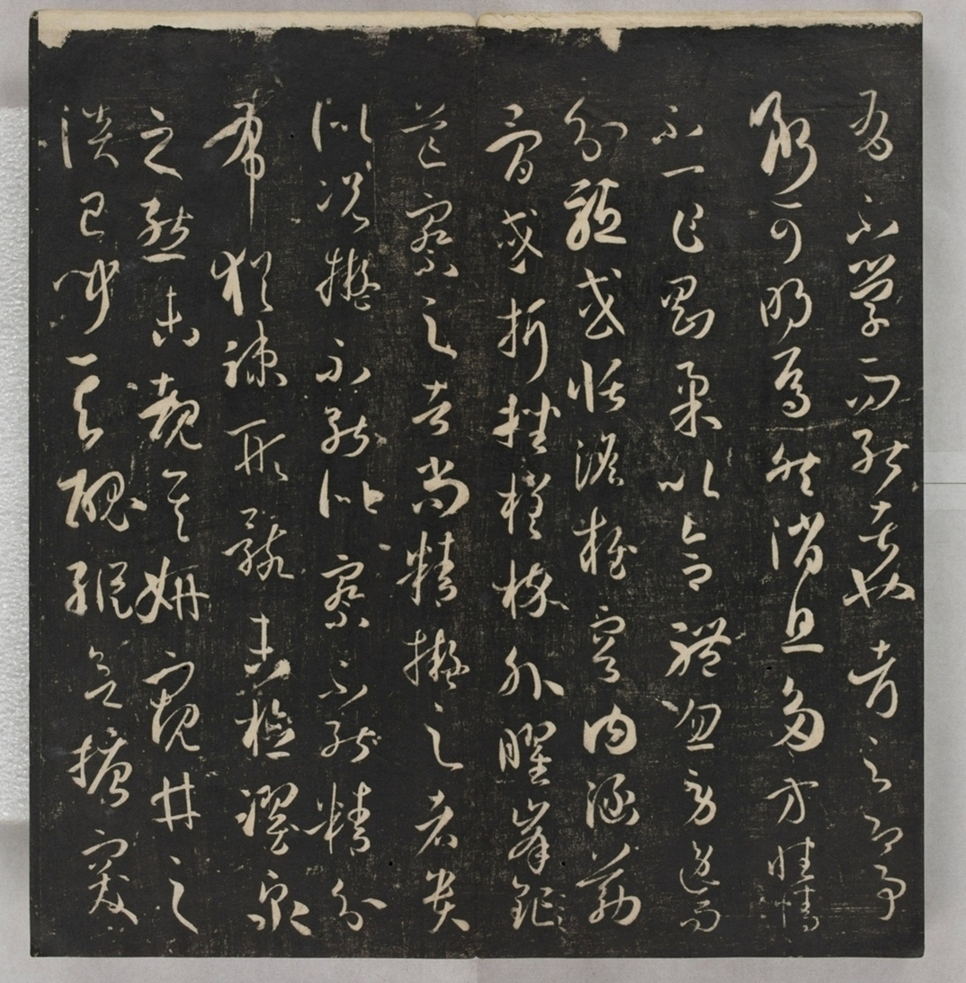 有不學而能者也考之即事
斷可明焉然消息多方性情
不一乍剛柔以合體忽勞逸而
分驅或恬憺雍容內涵筋
骨或折挫槎枿外曜峯
芒察之者尚精擬之者貴
似況擬不能似察不能精分
布猶疎形骸未檢躍泉
之態未覩其妍窺井之
談已聞其醜縱欲搪突